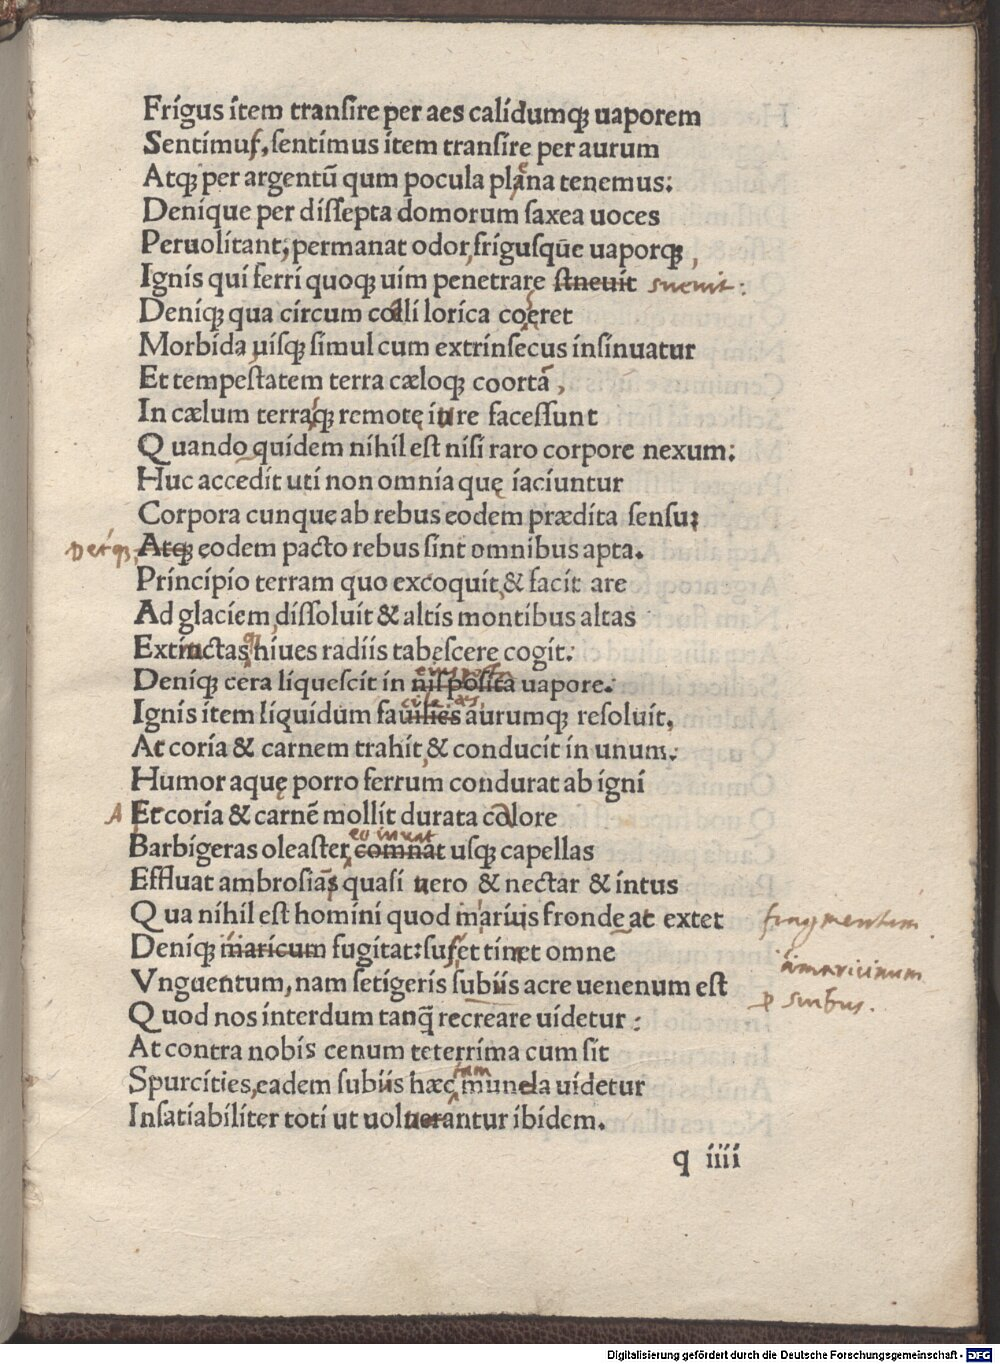 Frigus item transire per aes calidumq; uaporem
Sentimuſ, ſentimus item tranſire per aurum
Atq; per argentū qum pocula plana tenemus:
Denique per diſſepta domorum ſaxea uoces
Peruolitant, permanat odor, friguſqūe uaporq;,
Ignis qui ferri quoq; uim penetrare ſtneuit suevit:
Deniq; qua circum colli lorica coeret
Morbida uiſq; ſimul cum extrinſecus inſinuatur
Et tempeſtatem terra cæloq; coortā,
In cælum terraq; remotę iure faceſſunt
Quando quidem nihil eſt niſi raro corpore nexum:
Huc accedit uti non omnia quę iaciuntur
Corpora cunque ab rebus eodem prædita ſenſu:
Atq; eodem pacto rebus ſint omnibus apta.
Principio terram quo excoquit, & facit are
Ad glaciem diſſoluit & altis montibus altas
Extructas hiues radiis tabeſcere cogit:
Deniq; cera liqueſcit in niſ poſita uapore:
Ignis item liquidum fauilies aurumq; reſoluit,
At coria & carnem trahit, & conducit in unum:
Humor aquę porro ferrum condurat ab igni
A Et coria & carnē mollit durata colore
Barbigeras oleaſter, comnat uſq; capellas
Effluat ambroſiās quaſi uero & nectar & intus
Qua nihil eſt homini quod marius fronde at extet
Deniq; maricum fugitat: ſuſet tinet omne
amaricinum
Vnguentum, nam ſetigeris ſubiis acre uenenum eſt
suibus.
Quod nos interdum tanq̄ recreare uidetur:
At contra nobis cenum teterrima cum ſit
Spurcities, eadem ſubiis hæc tam munda uidetur
Inſatiabiliter toti ut uoluerantur ibidem.
q iiii
Digitalisierung gefördert durch die Deutsche Forschungsgemeinschaft - DFG